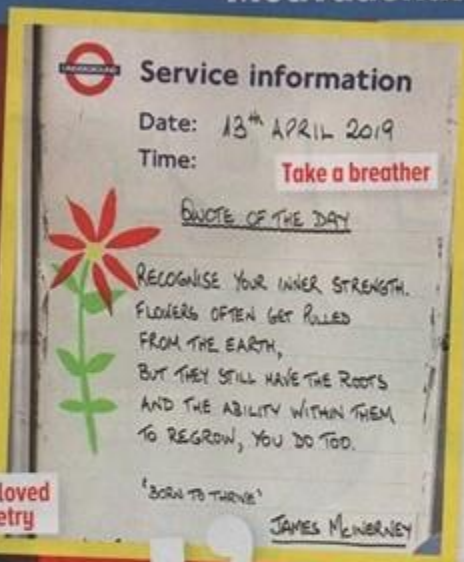 UNDERGROUND
Service information
Date: 13th APRIL 2019
Time:
Take a breather
QUOTE OF THE DAY
RECOGNISE YOUR INNER STRENGTH.
FLOWERS OFTEN GET PULLED
FROM THE EARTH,
BUT THEY STILL HAVE THE ROOTS
AND THE ABILITY WITHIN THEM
TO REGROW, YOU DO TOO.
'BORN TO THRIVE'
JAMES McINERNEY
loved
etry